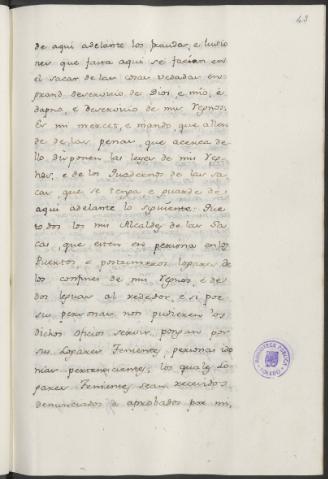 43
de aqui adelante los fraudes, e lusio
nes que fasta aqui se facian en
el sacar de las cosas vedadas en
grand deservicio de Dios, e mio, e
dapno, e deservicio de mis Regnos.
Es mi merced, e mando que allen
de de las penas, que acerca de
llo disponen las leyes de mis Reg
nos, e de los Quadernos de las sa
cas que se tenga e guarde de
aqui adelante lo siguiente. Que
todos los mis Alcaldes de las Sa
cas, que esten en persona en los
Puertos e postrimeros logares de
los confines de mis Regnos e de
dos leguas al rededor, e si por
sus personas non pudieren los
dichos oficios servir, pongan por
sus Logares Tenientes personas ido
neas pertenecientes, los quales Lo
gares Tenientes sean recevidos
denunciados e aprobados por mi,
BIBLIOTECA PUBLICA
TOLEDO